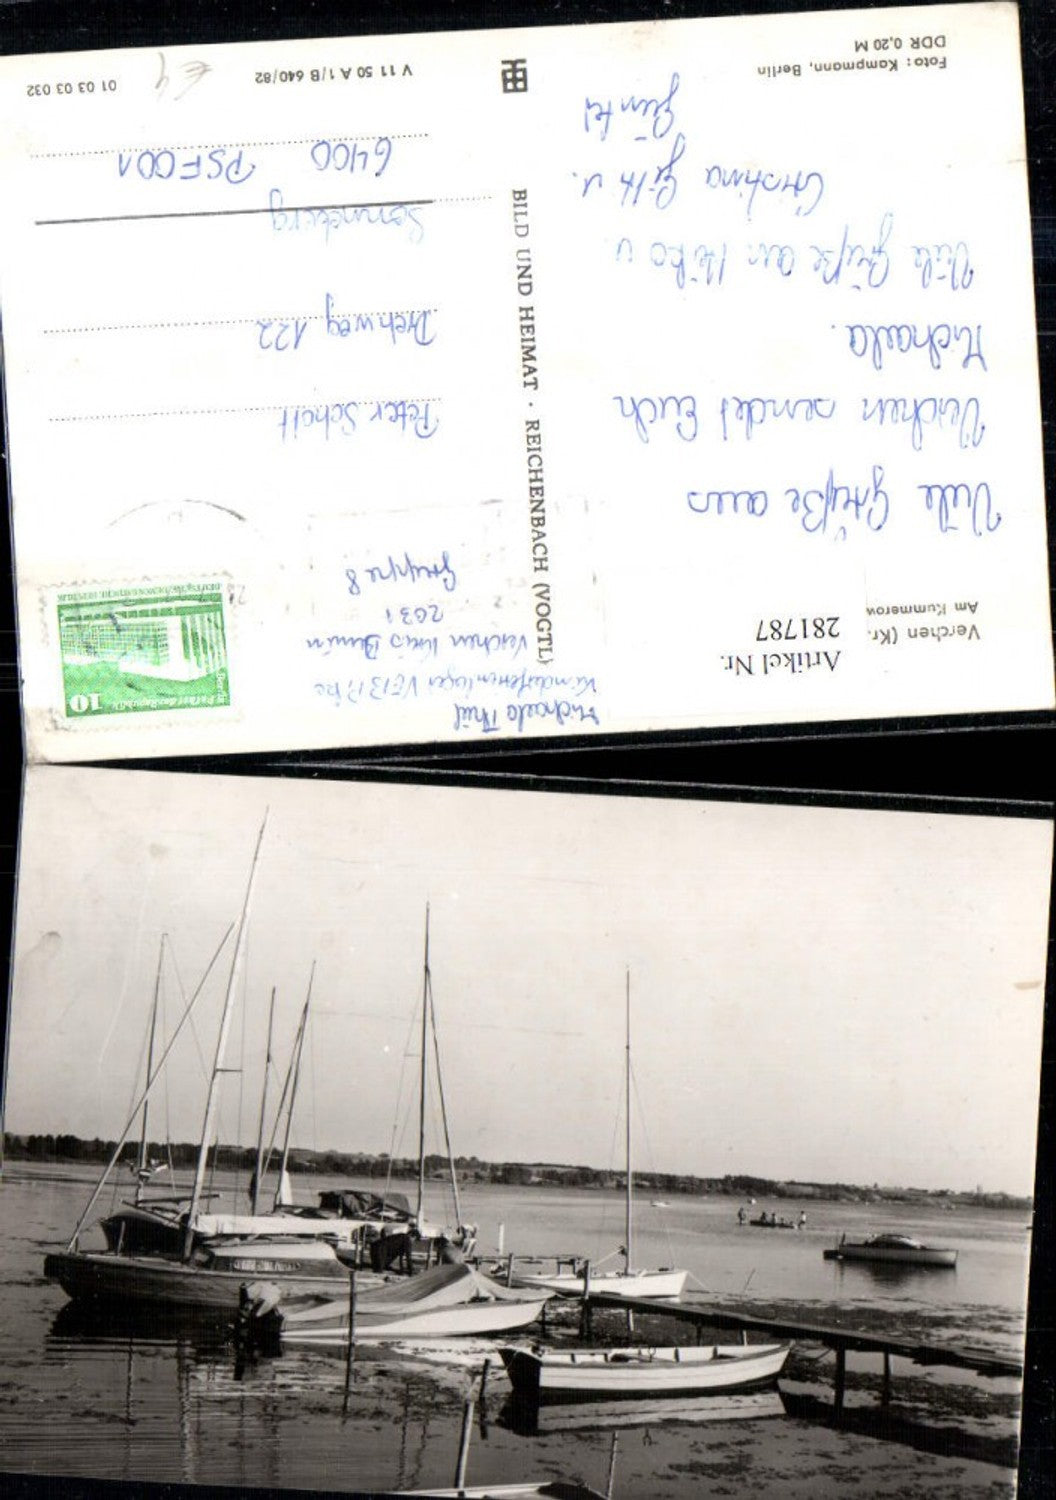 Verchen (Kr.
Am Kummerow
Artikel Nr.
281787
Viele Grüße aus
Verchen sendet Euch
Michaela.
Viele Grüße an Heiko u.
Christina Edith u.
Günter
Foto: Kampmann, Berlin
DDR 0,20 M
BILD UND HEIMAT · REICHENBACH (VOGTL)
Michaela Thiel
Kinderferienlager VEB
Verchen Kreis Demmin
2031
Gruppe 8
10
Berlin Palast der Republik
DEUTSCHE DEMOKRATISCHE REPUBLIK
Peter Schott
Dichweg 122
Sonneberg
6400 PSF001
V 11 50 A 1/B 640/82
01 03 03 032
€4